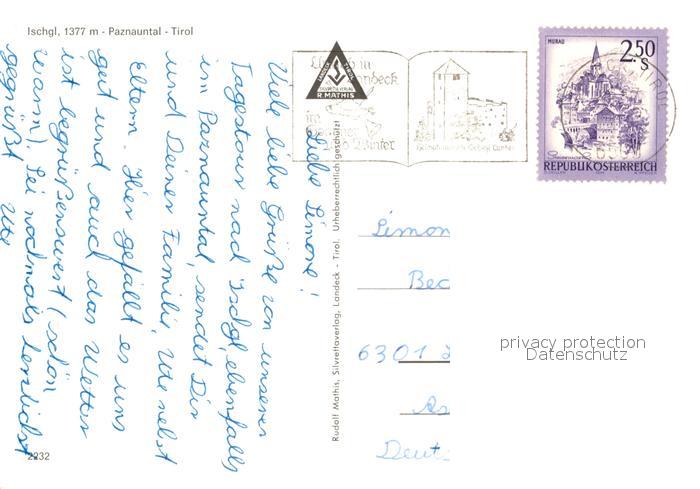 Ischgl, 1377 m - Paznauntal - Tirol
Liebe Simone!
Viele liebe Grüße von unserer
Tagestour nach Ischgl, ebenfalls
im Paznauntal, sendet Dir
und Deiner Familie, Ute nebst
Eltern. Hier gefällt es uns
gut und auch das Wetter
ist begrüßenswert (schön
warm) Sei nochmals herzlichst
gegrüßt Ute
2232
R. MATHIS
Rudolf Mathis, Silvrettaverlag, Landeck - Tirol. Urheberrechtlich geschützt!
Urlaub in
Landeck
im
Sommer
und Winter
MURAU
2.50
S
REPUBLIK ÖSTERREICH
Simon
Bec
6301
Deut
privacy protection
Datenschutz